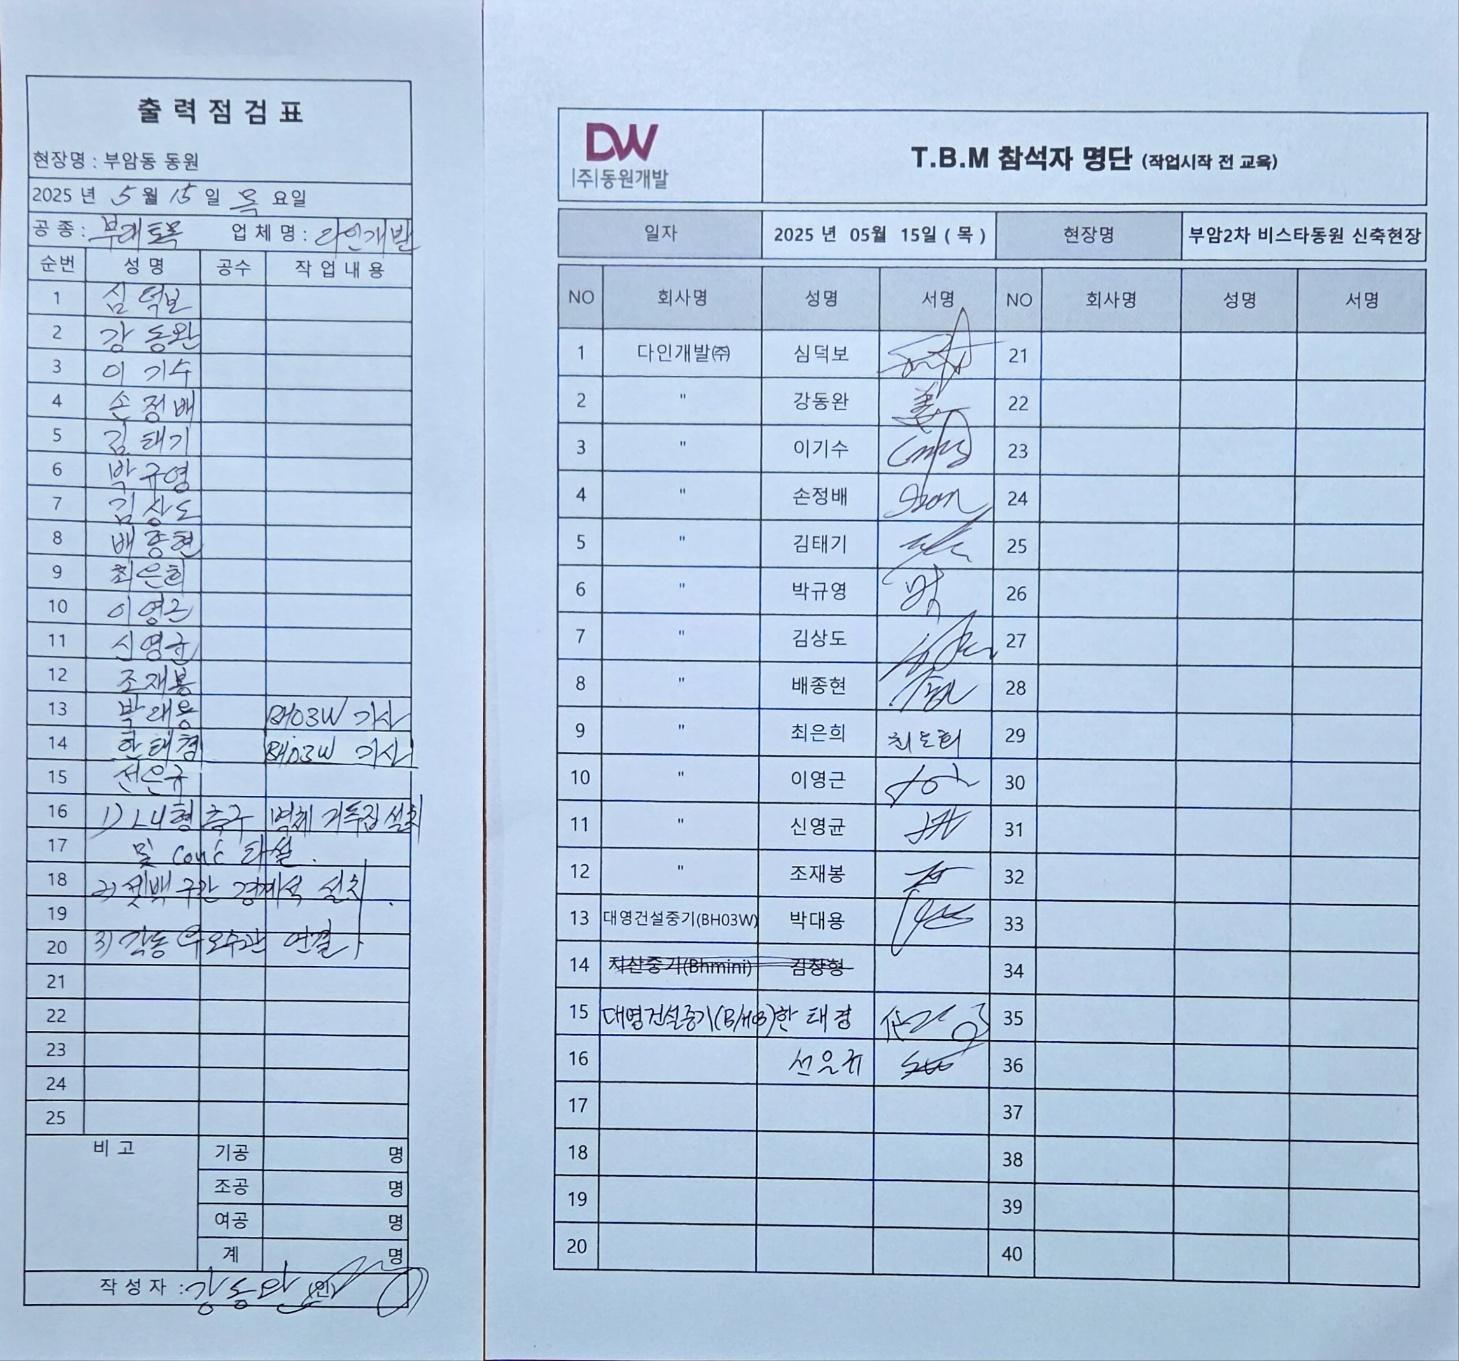 출 력 점 검 표
현장명 : 부암동 동원
2025 년 5 월 15 일 목 요일
공 종 : 부대토목 업 체 명 : 다인개발
순번 성 명 공수 작 업 내 용
1 심덕보
2 강동완
3 이기수
4 손정배
5 김태기
6 박규영
7 김상도
8 배종현
9 최은희
10 이영근
11 신영균
12 조재봉
13 박대용 BH03W 기사
14 한태경 BH03W 기사
15 선은규
16 1) L U형 측구 벽체 거푸집 설치
17 및 con'c 타설.
18 2) 셋백구간 경계석 설치.
19
20 3) 각동 우오수관 연결
21
22
23
24
25
비 고 기공 명
조공 명
여공 명
계 명
작 성 자 : 강동완 (인)
DW
(주)동원개발
T.B.M 참석자 명단 (작업시작 전 교육)
일자 2025 년 05월 15일 ( 목 ) 현장명 부암2차 비스타동원 신축현장
NO 회사명 성명 서명 NO 회사명 성명 서명
1 다인개발㈜ 심덕보 21
2 " 강동완 姜 22
3 " 이기수 23
4 " 손정배 24
5 " 김태기 25
6 " 박규영 26
7 " 김상도 27
8 " 배종현 28
9 " 최은희 최은희 29
10 " 이영근 30
11 " 신영균 31
12 " 조재봉 32
13 대영건설중기(BH03W) 박대용 33
14 지산중기(Bhmini) 김창형 34
15 대영건설중기(B/H03) 한태경 35
16 선은규 36
17 37
18 38
19 39
20 40